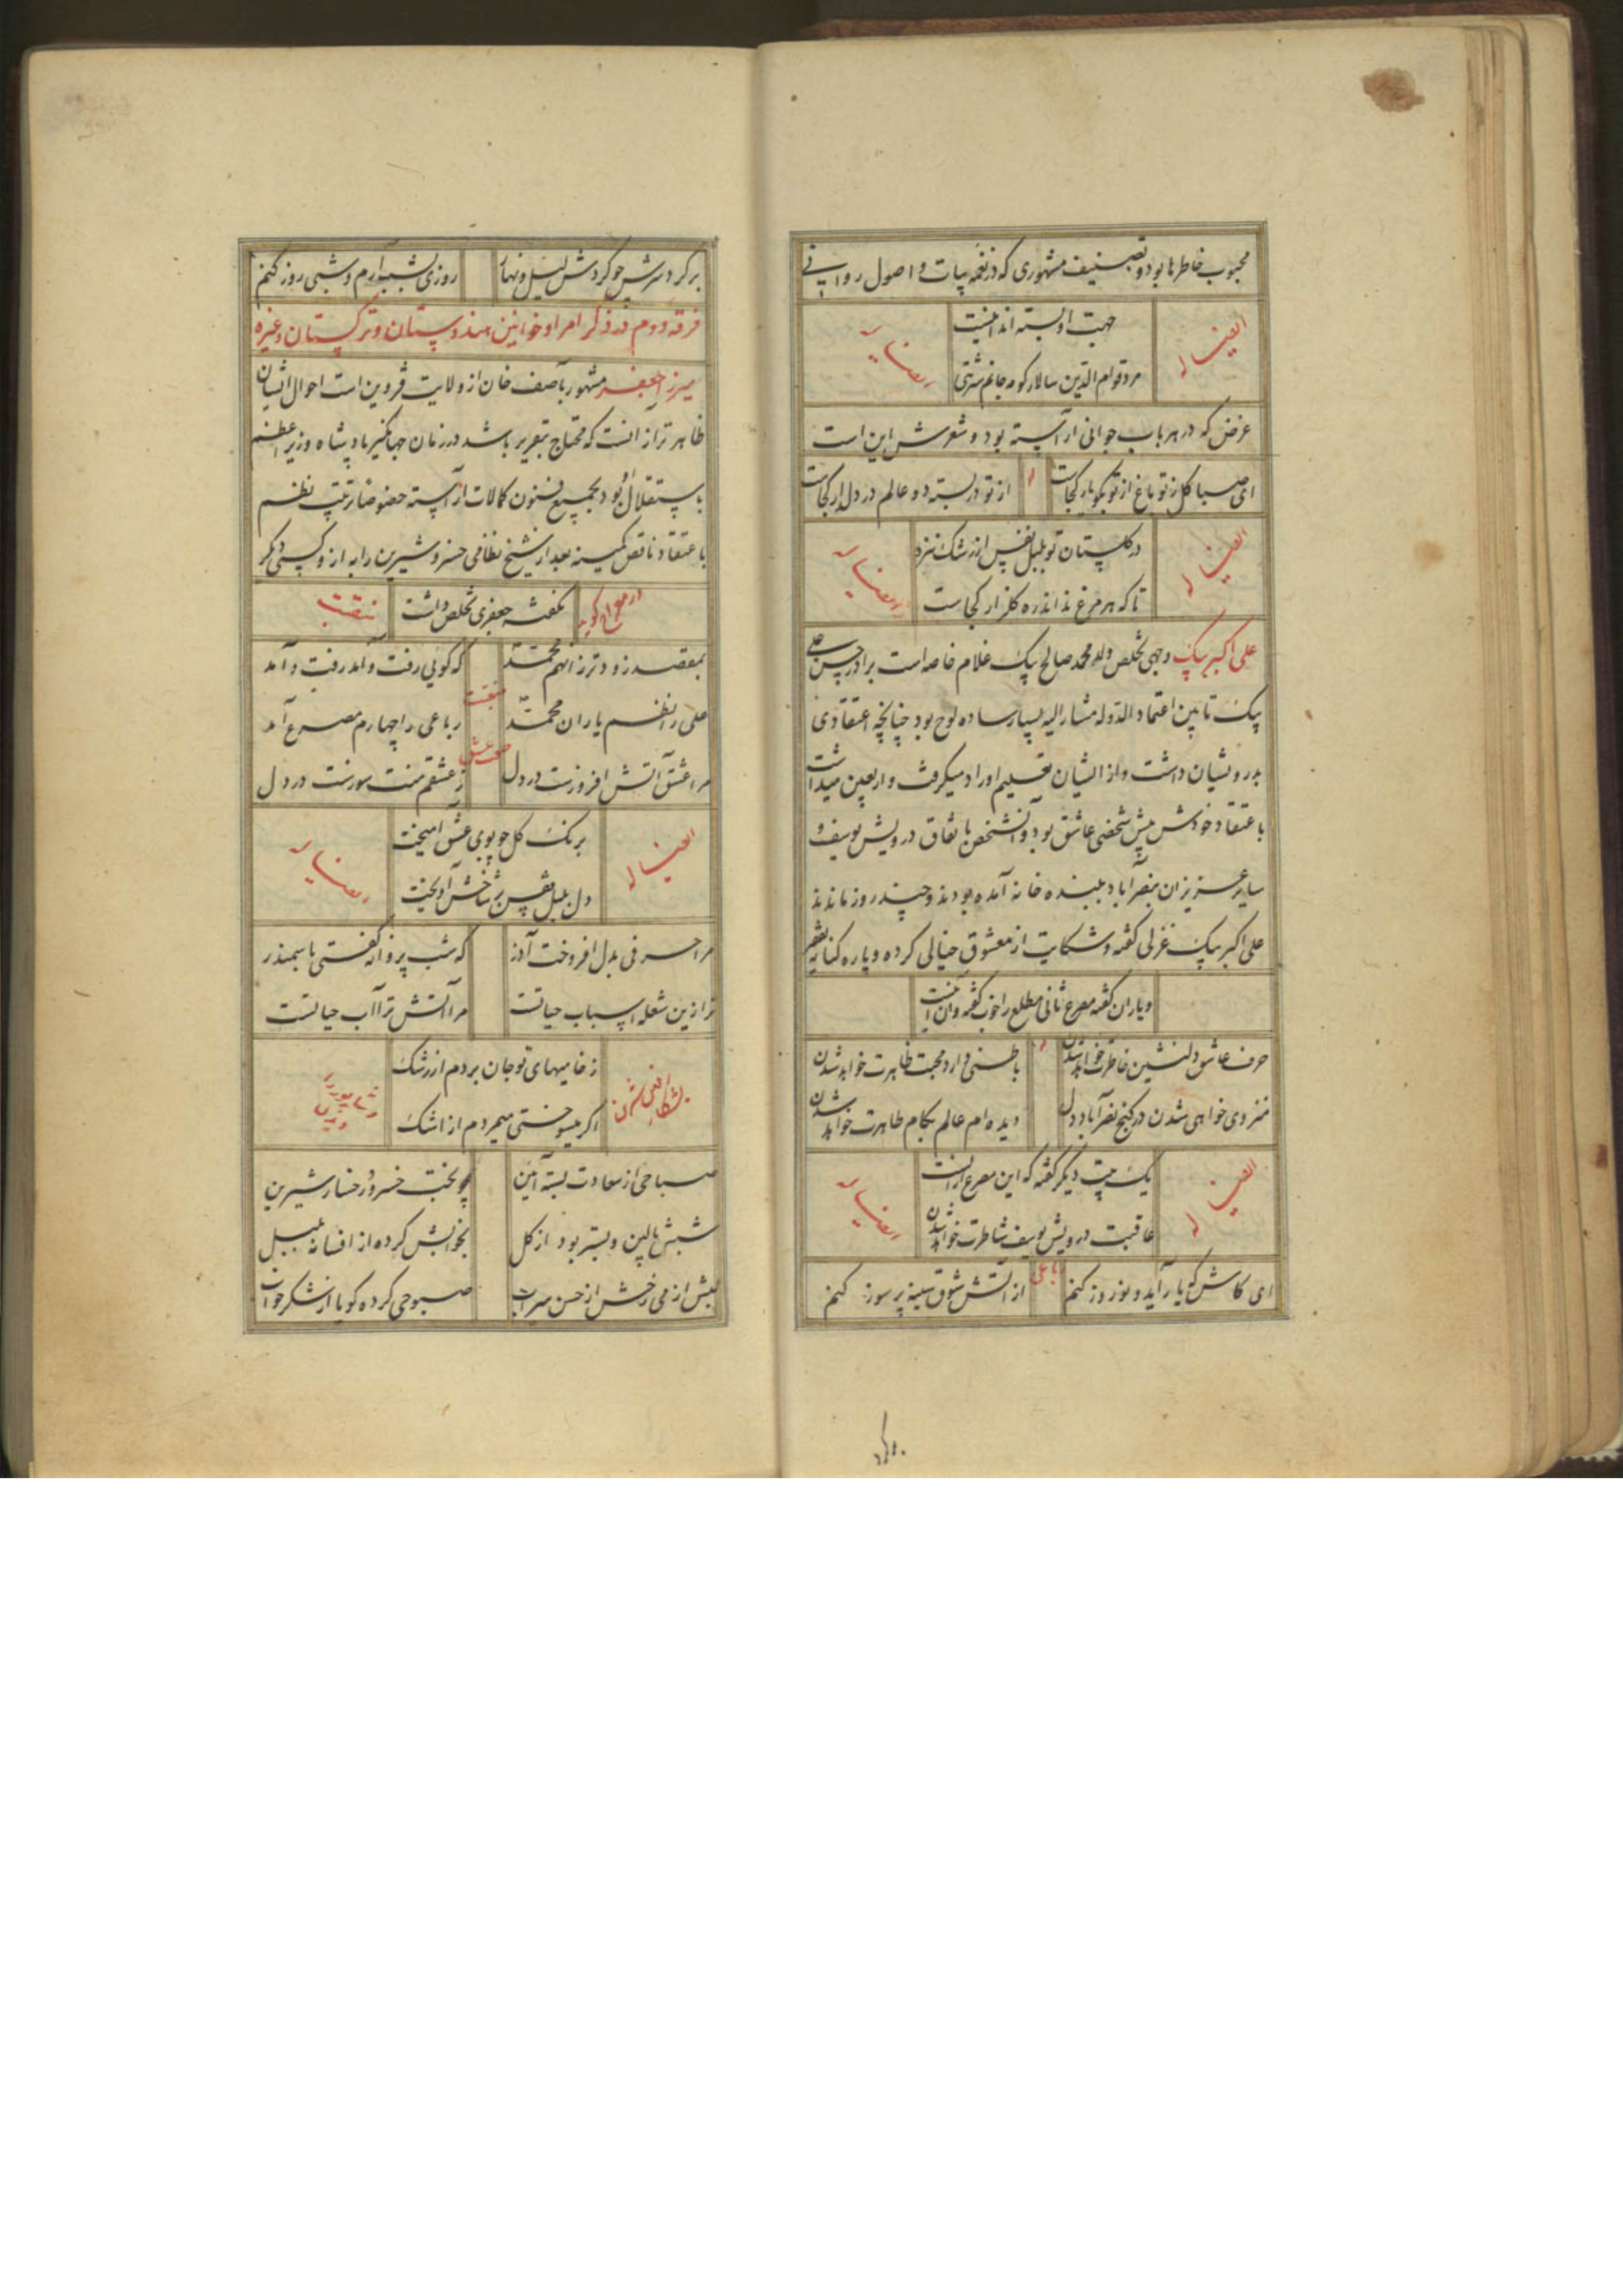 محبوب خاطرها بود و تصنیف مشهوری که در نغمه بیات و اصول روانی
جهت او بسته اند اینست
ایضا له
ایضا له
مرد قوام الدین سالار کو مه جانم شربتی
غرض که در هر باب جوانی آراسته بود و شعرش این است
ای صبا کل ز تو باغ از تو بکو یار کجاست
از تو در بسته دو عالم در دلدار کجاست
ایضا له
در کلستان تو بلبل نفس از رشک نزد
ایضا له
تا که هر مرغ نداند ره کلزار کجاست
علی اکبر بیک وجهی تخلص ولد محمد صالح بیک غلام خاصه است برادر حسن علی
بیک تابین اعتماد الدوله مشار الیه بسیار ساده لوح بود چنانچه اعتقادی
بدرویشان داشت و از ایشان تعلیم اوراد میکرفت و اربعین میداشت
باعتقاد خودش پیش شخصی عاشق بود و آنشخص باتفاق درویش یوسف و
سایر عزیزان بنصرآباد ببنده خانه آمده بودند و چند روز ماندند
علی اکبر بیک غزلی کفته و شکایت از معشوق خیالی کرده و پاره کنایه بفقیر
و یاران کفته مصرع ثانی مطلع را خوب کفته و آن اینست
حرف عاشق دلنشین خاطرت خواهد شدن
باطنی دارد محبت ظاهرت خواهد شدن
منزوی خواهی شدن در کنج نصرآباد دل
دیده ام عالم بکام طاهرت خواهد شدن
ایضا له
یک بیت دیکر کفته که این مصرع از آنست
ایضا له
عاقبت درویش یوسف شاطرت خواهد شدن
ای کاش که یار آید و نوروز کنم
رباعی
از آتش شوق سینه پر سوز کنم
بر کرد سرش چو کردش لیل و نهار
روزی بشب آرم و شبی روز کنم
فرقه دوم در ذکر امرا و خوانین هندوستان و ترکستان و غیره
میرزا جعفر مشهور بآصف خان از ولایت قزوین است احوال ایشان
ظاهرتر از آنست که محتاج بتقریر باشد در زمان جهانکیر پادشاه وزیر اعظم
باستقلال بود و بجمیع فنون کمالات آراسته خصوصا در ترتیب نظم
باعتقاد ناقص کمینه بعد از شیخ نظامی خسرو شیرین را به از و کسی دیکر
نکفته جعفری تخلص داشت
منقبت
بمقصد زودتر زانهم محمد
که کوئی رفت و آمد رفت و آمد
منقبت
علی را نظم یاران محمد
رباعی را چهارم مصرع آمد
صفت عشق
مرا عشق آتش افروزست در دل
ز عشقم منت سوزست در دل
ایضا له
برنک کل چو بوی عشق آمیخت
ایضا له
دل بلبل بقیس بر شاخش آویخت
مرا حرفی بدل افروخت آذر
که شب پروانه کفتی با سمندر
ترا زین شعله اسباب حیاتست
مرا آتش ترا آب حیاتست
ز خامیهای تو جان بردم از رشک
اکر میسوختی میمردم از اشک
صباحی از سعادت بسته آئین
چو بخت خسرو رخسار شیرین
شبش بالین و بستر بود از کل
بخوابش کرده از افسانه بلبل
لبش از می رخش از حسن سیراب
صبوحی کرده کویا از شکر خواب
بر کرد